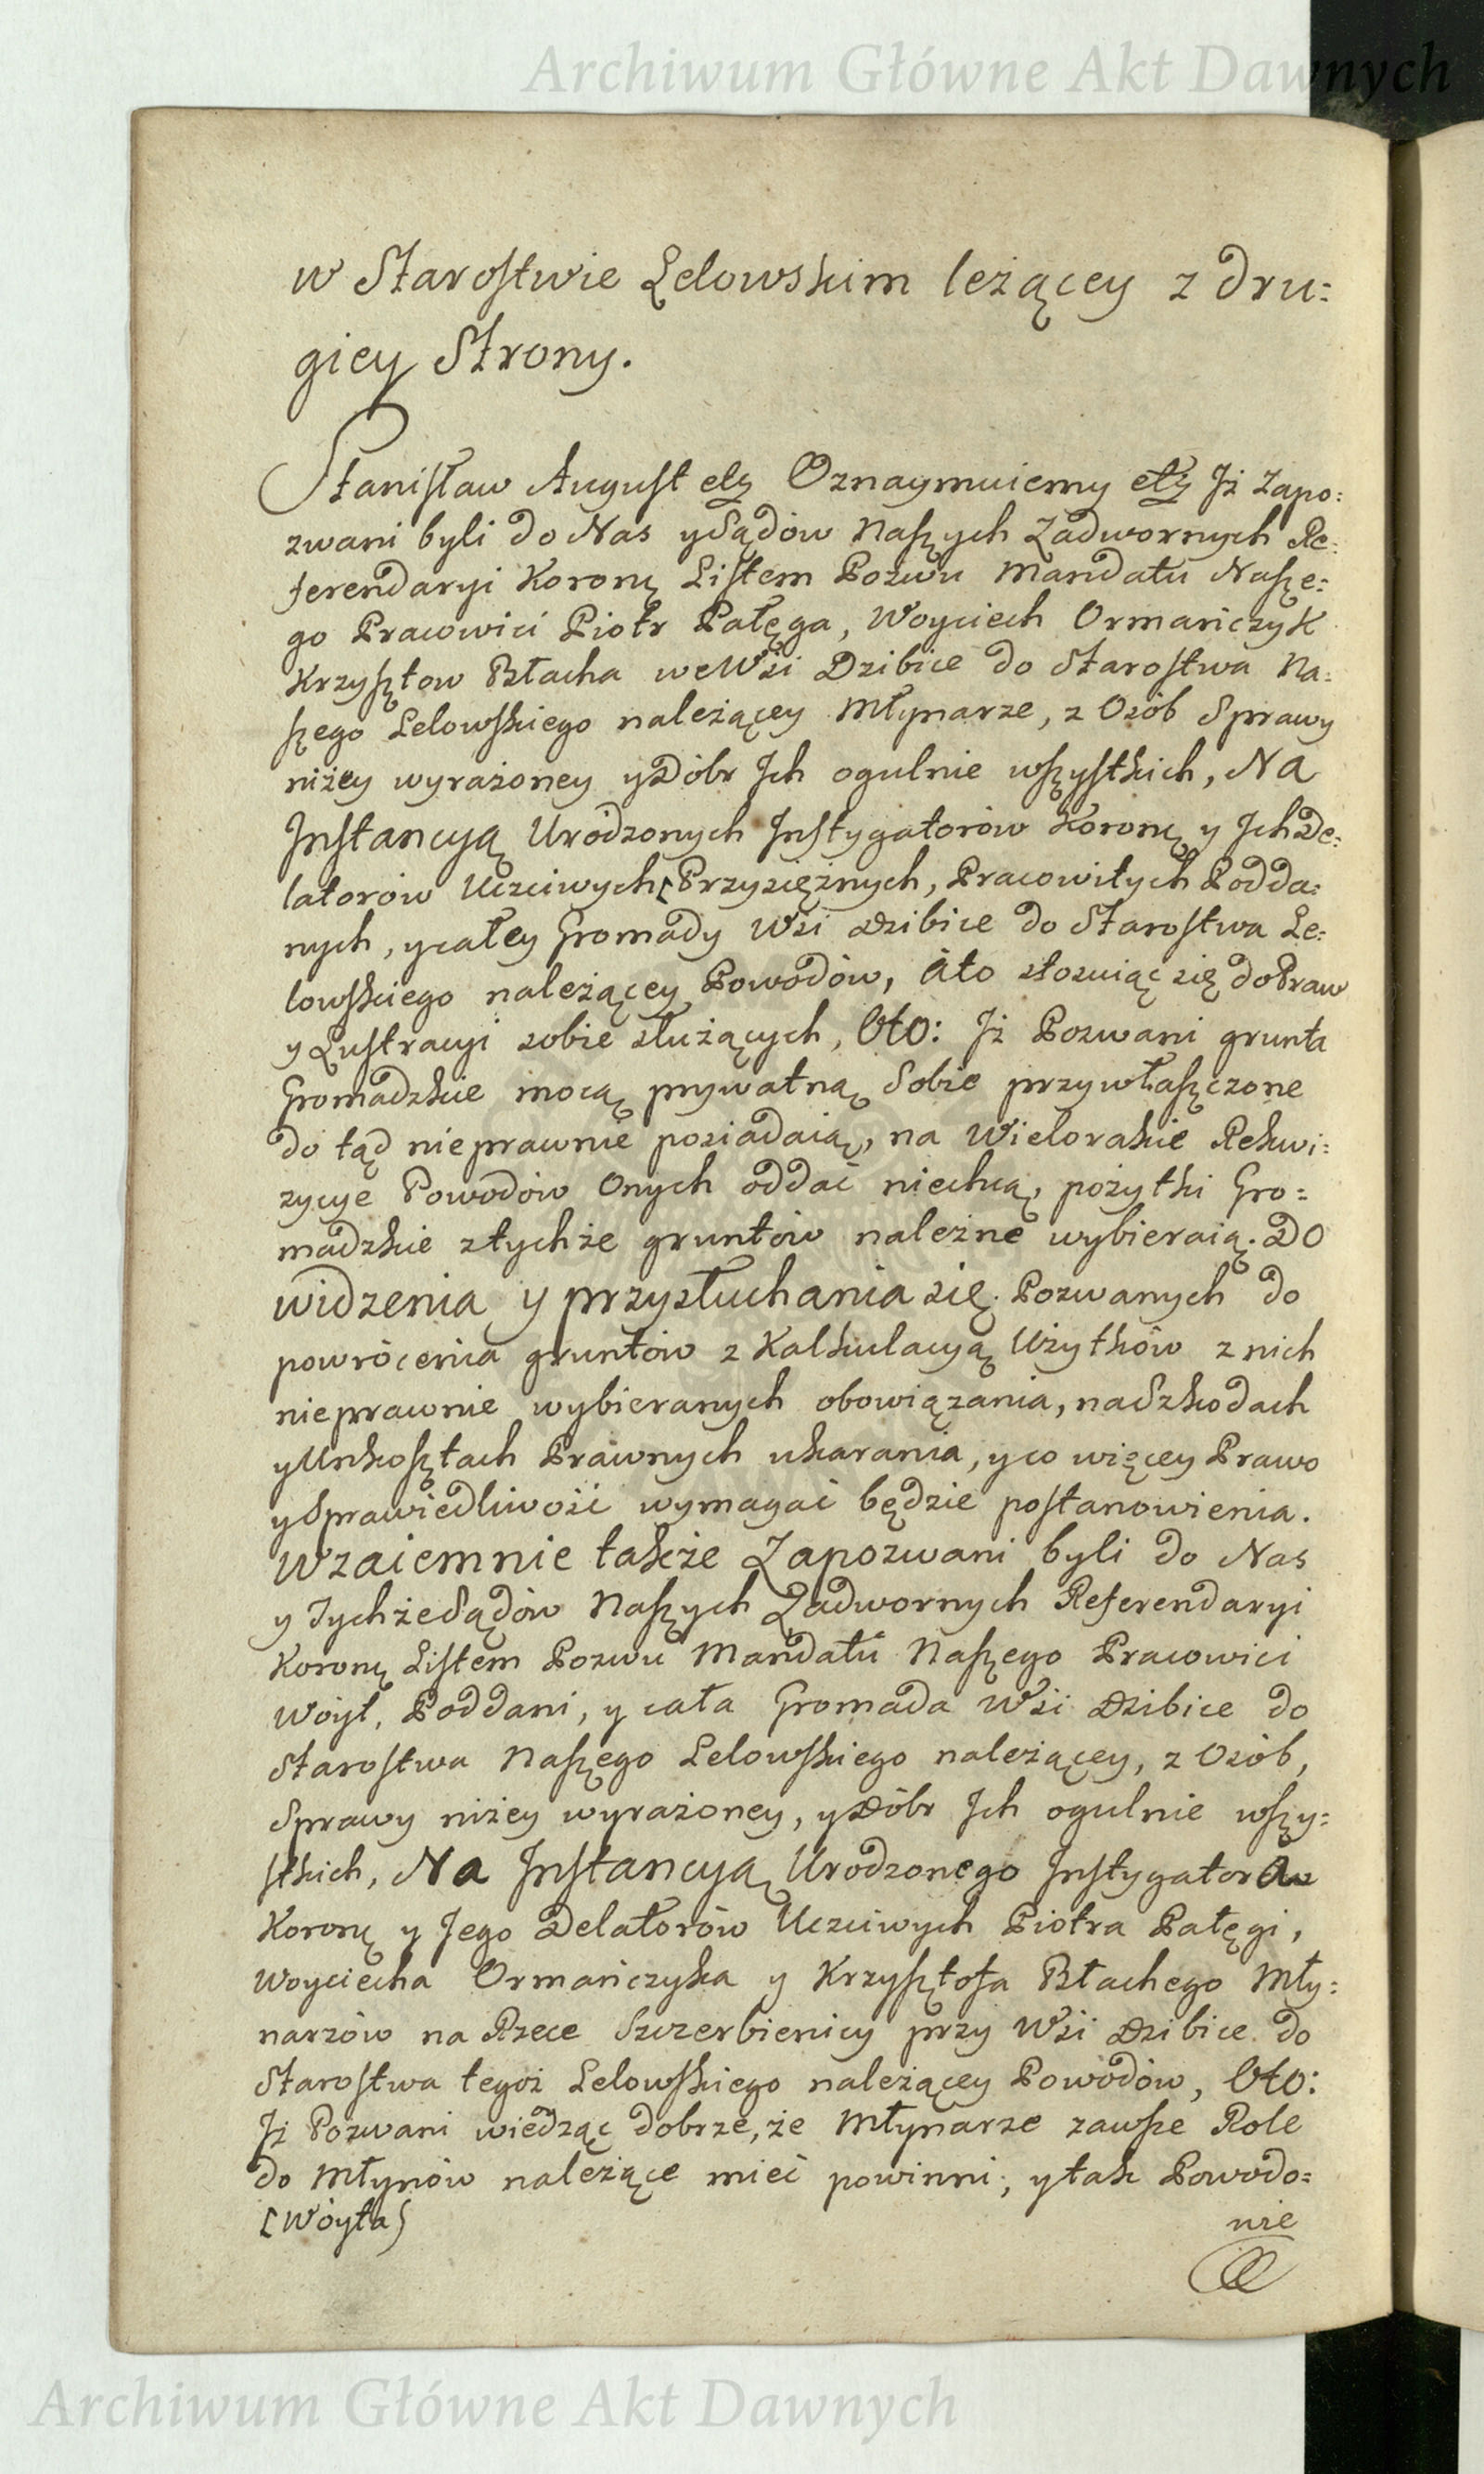 Archiwum Główne Akt Dawnych
w Starostwie Lelowskim leżącey z dru:
giey Strony.
Stanisław August etc Oznaymuiemy etc Jż Zapo:
zwani byli do Nas y Sądów Naszych Zadwornych Re:
ferendaryi Koronę Listem Pozwu Mandatu Nasze:
go Pracowici Piotr Pałęga, Woyciech Ormańczyk
Krzysztow Błacha we Wsi Dzibice do Starostwa Na:
szego Lelowskiego należącey Młynarze, z Osób Sprawy
niżey wyrażoney y Dóbr Jch ogulnie wszystkich, Na
Jnstancyą Urodzonych Jnstygatorów Koronę y Jch De:
latorów Uczciwych [ Przysiężnych, Pracowitych Podda:
nych, y całey Gromady Wsi Dzibice do Starostwa Le:
lowskiego należącey Powodów, Ato stosuiąc się do Praw
y Lustracyi sobie służących, Oto: Jż Pozwani grunta
Gromadzkie mocą prywatną Sobie przywłaszczone
do tąd nieprawnie posiadaią, na Wielorakie Rekwi:
zycye Powodów Onych oddać niechcą, pożytki Gro=
madzkie ztychże gruntów należne wybieraią. Do
widzenia y przysłuchania się Pozwanych do
powrócenia gruntów z Kalkulacyą Użytków z nich
nieprawnie wybieranych obowiązania, na Szkodach
y Unkosztach Prawnych ukarania, y co więcey Prawo
y Sprawiedliwość wymagać będzie postanowienia.
Wzaiemnie także Zapozwani byli do Nas
y Tychże Sądów Naszych Zadwornych Referendaryi
Koronę Listem Pozwu Mandatu Naszego Pracowici
Woyt, Poddani, y cała Gromada Wsi Dzibice do
Starostwa Naszego Lelowskiego należącey, z Osób,
Sprawy niżey wyrażoney, y Dóbr Jch ogulnie wszy:
stkich, Na Jnstancyą Urodzonego Jnstygatora
Koronę y Jego Delatorów Uczciwych Piotra Pałęgi,
Woyciecha Ormańczyka y Krzysztofa Błachego Mły:
narzów na Rzece Szczerbienicy przy Wsi Dzibice do
Starostwa tegoż Lelowskiego należącey Powodów, Oto:
Jż Pozwani wiedząc dobrze, że Młynarze zawsze Role
do Młynów należące mieć powinni; y tak Powodo=
[Woyta]
nie
Archiwum Główne Akt Dawnych